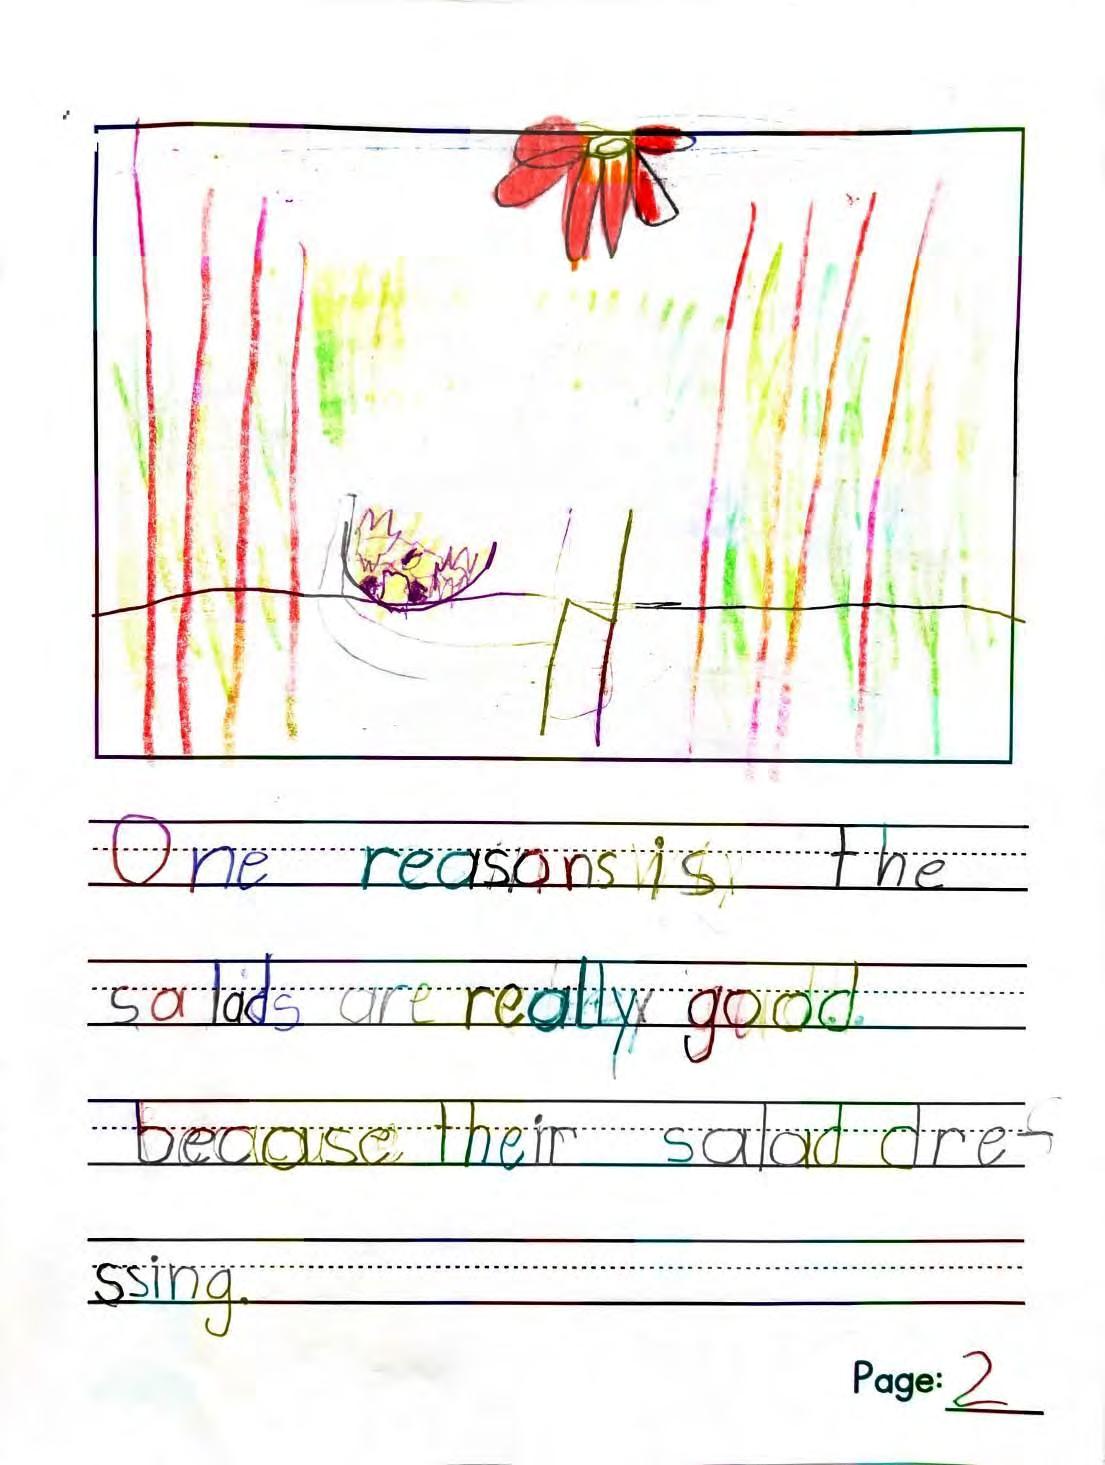 One reasons is the
salads are really good.
becaause their salad dres
ssing.
Page: 2